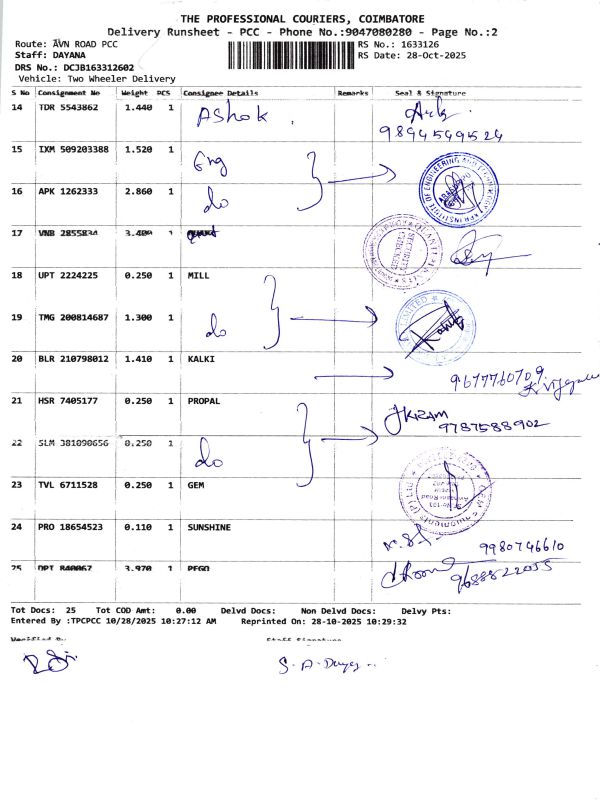 THE PROFESSIONAL COURIERS, COIMBATORE
Delivery Runsheet - PCC - Phone No.:9047080280 - Page No.:2
Route: AVN ROAD PCC RS No.: 1633126
Staff: DAYANA RS Date: 28-Oct-2025
DRS No.: DCJB163312602
Vehicle: Two Wheeler Delivery
S No Consignment No Weight PCS Consignee Details Remarks Seal & Signature
14 TDR 5543862 1.440 1 Ashok
9894549524
15 IXM 509203388 1.520 1 Eng
16 APK 1262333 2.860 1 do
KPR INSTITUTE OF ENGINEERING AND TECHNOLOGY
17 VNB 285583 3.400 1
SECURITY CHECKED
18 UPT 2224225 0.250 1 MILL
19 TMG 200814687 1.300 1 do
LIMITED
20 BLR 210798012 1.410 1 KALKI
9677760709
21 HSR 7405177 0.250 1 PROPAL
9787588902
22 SLM 381090656 0.250 1 do
23 TVL 6711528 0.250 1 GEM
24 PRO 18654523 0.110 1 SUNSHINE
9980746610
25 DPT 840067 3.970 1 PEGO
9688822055
Tot Docs: 25 Tot COD Amt: 0.00 Delvd Docs: Non Delvd Docs: Delvy Pts:
Entered By :TPCPCC 10/28/2025 10:27:12 AM Reprinted On: 28-10-2025 10:29:32
Verified By Staff Signature